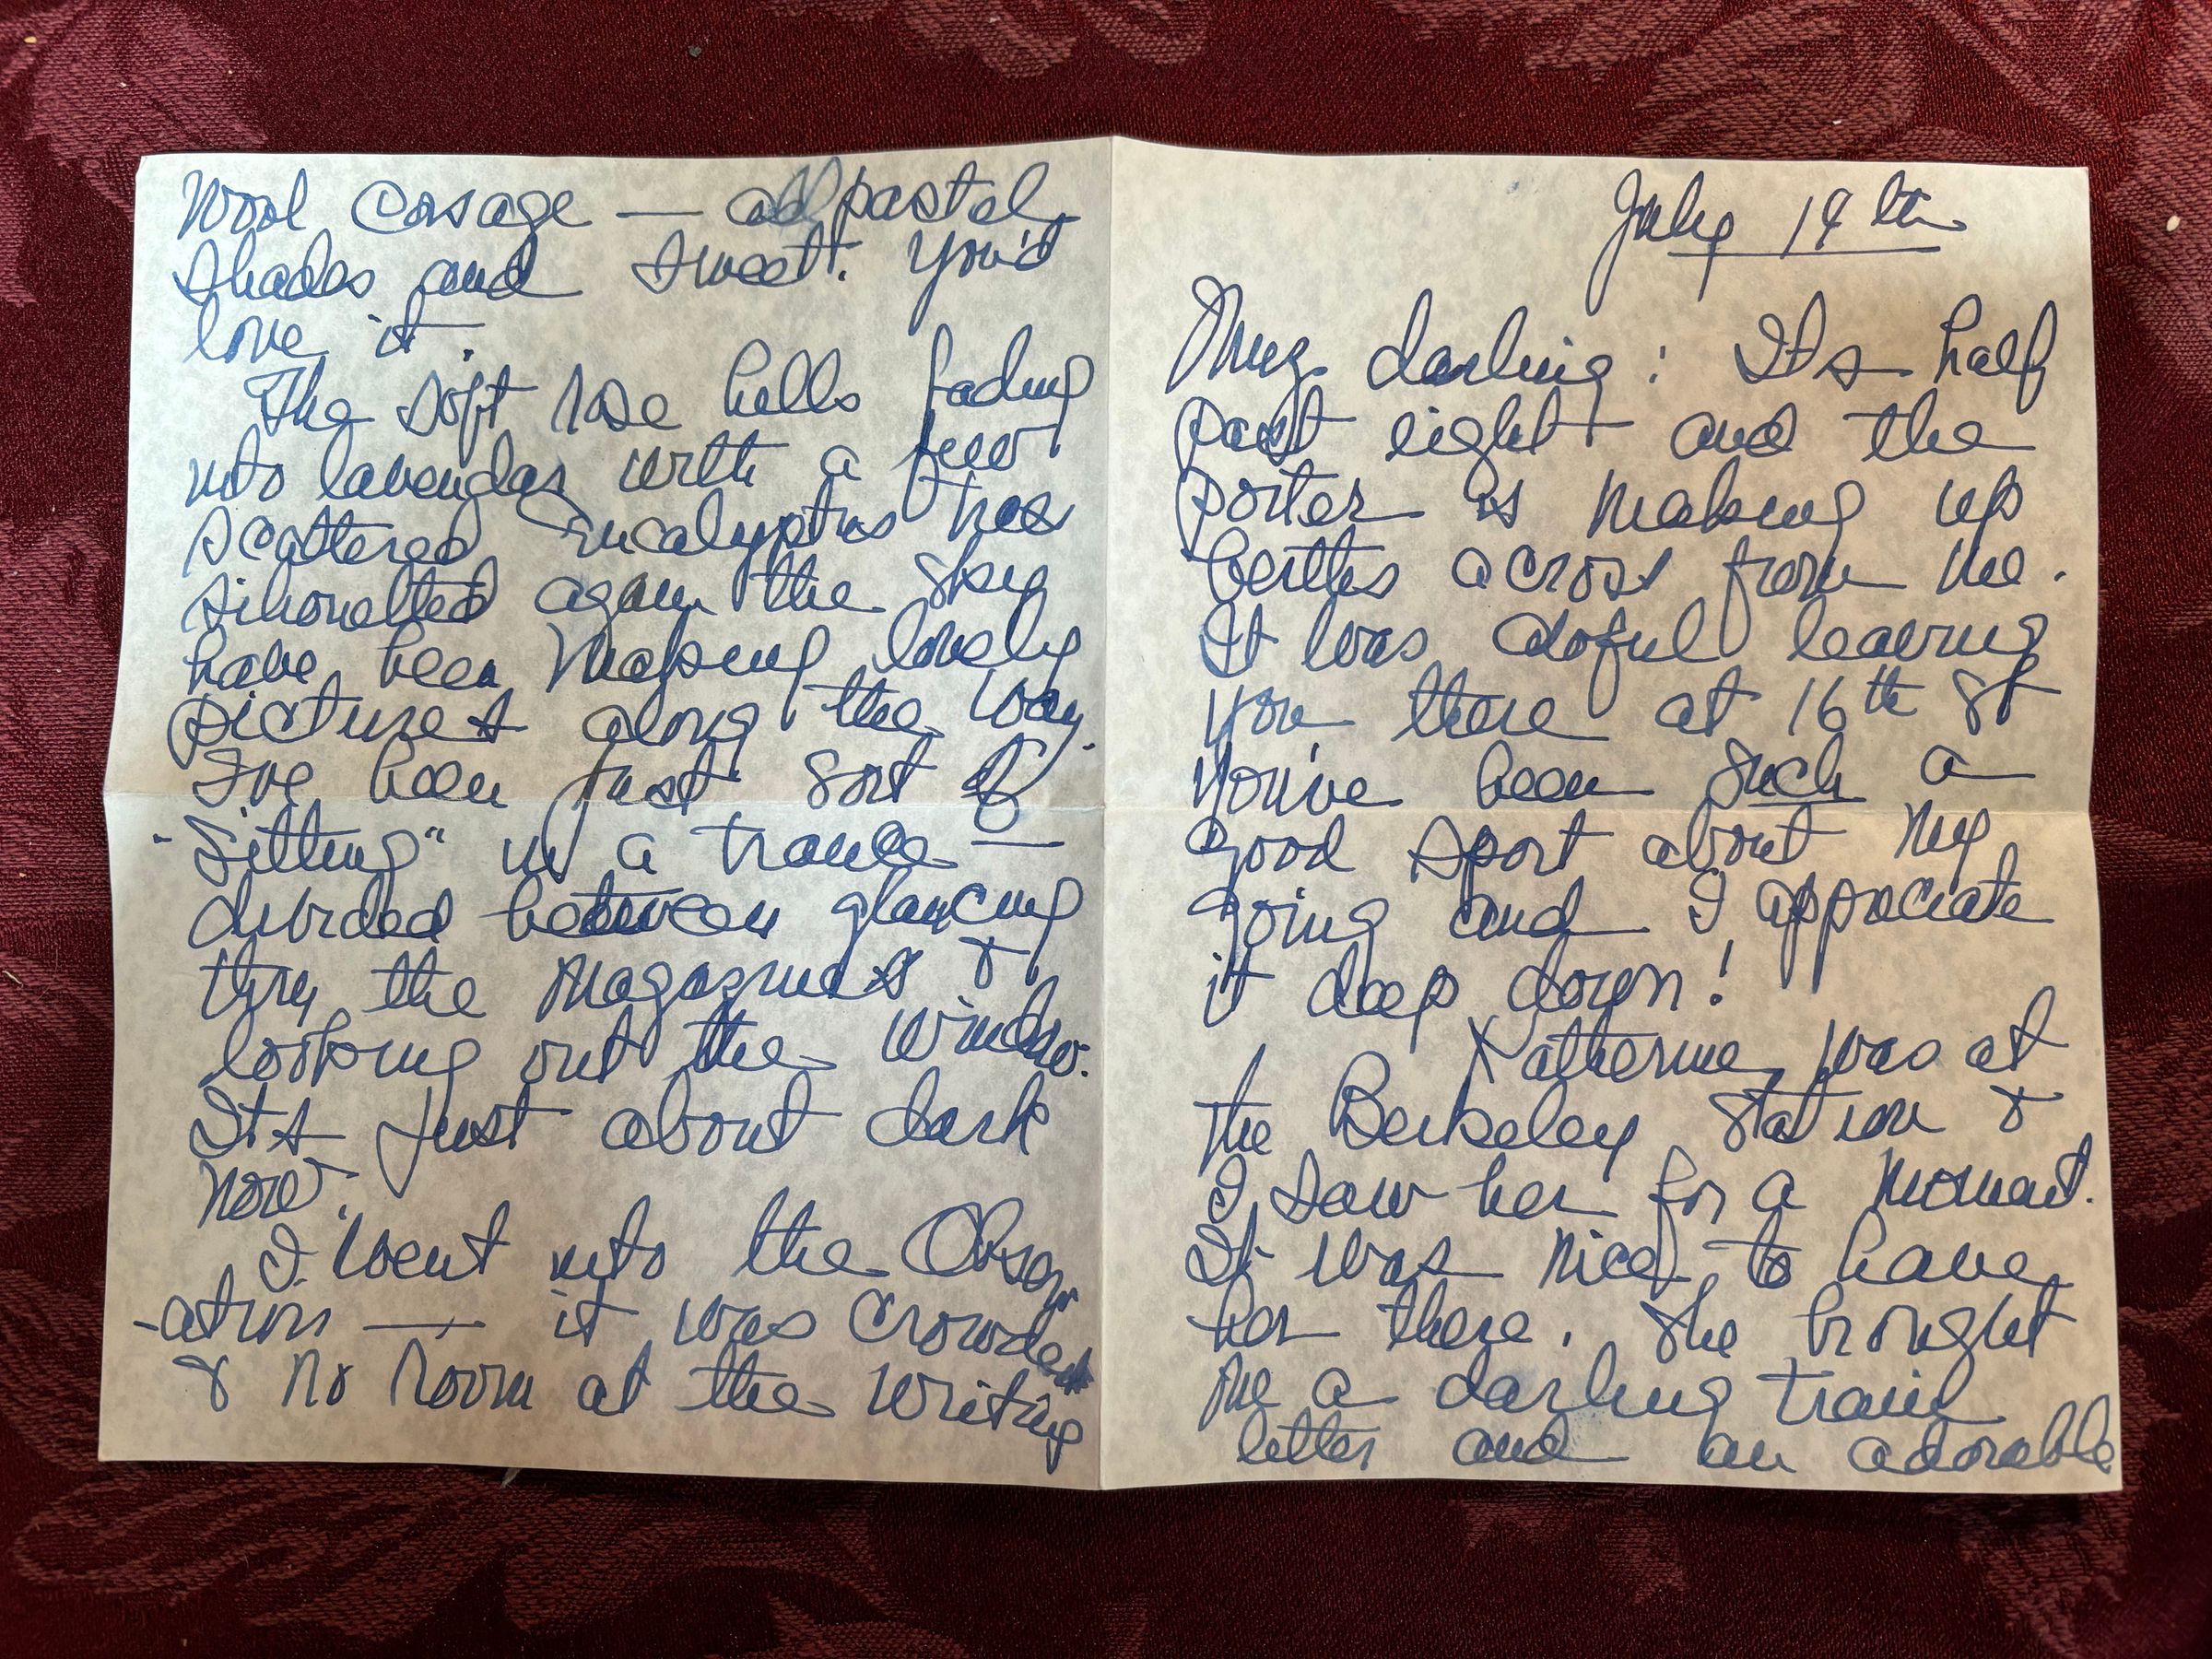 July 14th
My darling: Its half
past eight and the
porter is making up
berths across from me.
It was doful leaving
you there at 16th St
You've been such a
good sport about my
going and I appreciate
it deep down!
Katherine was at
the Berkeley Station &
I saw her for a moment.
It was nice to have
her there. She brought
me a darling train
letter and an adorable
wool corsage — all pastel
shades and sweet. You'd
love it.
The soft rose hills fading
into lavendar with a few
scattered Eucalyptus trees
sihouetted again the sky
have been making lovely
pictures along the way.
I've been just sort of
"sitting" in a trance —
divided between glancing
thru the magazines &
looking out the window.
Its just about dark
now.
I went into the Observ
-ation — it was crowded
& no room at the writing